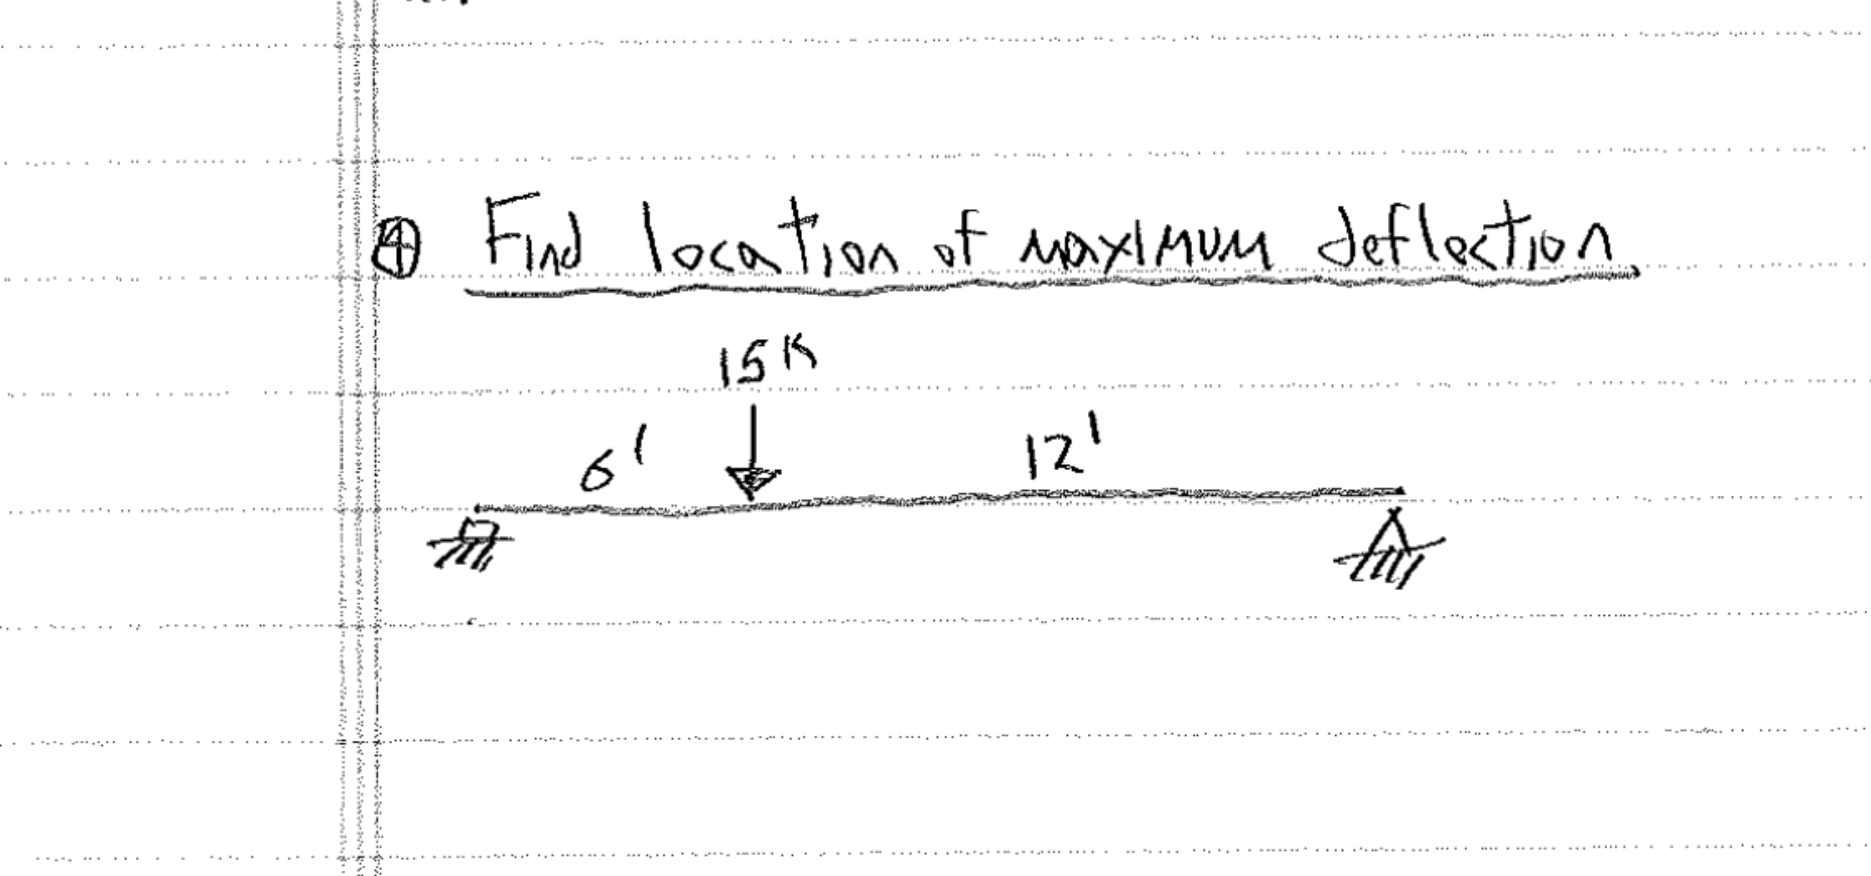 ④ Find location of maximum deflection.
15K
6' 12'